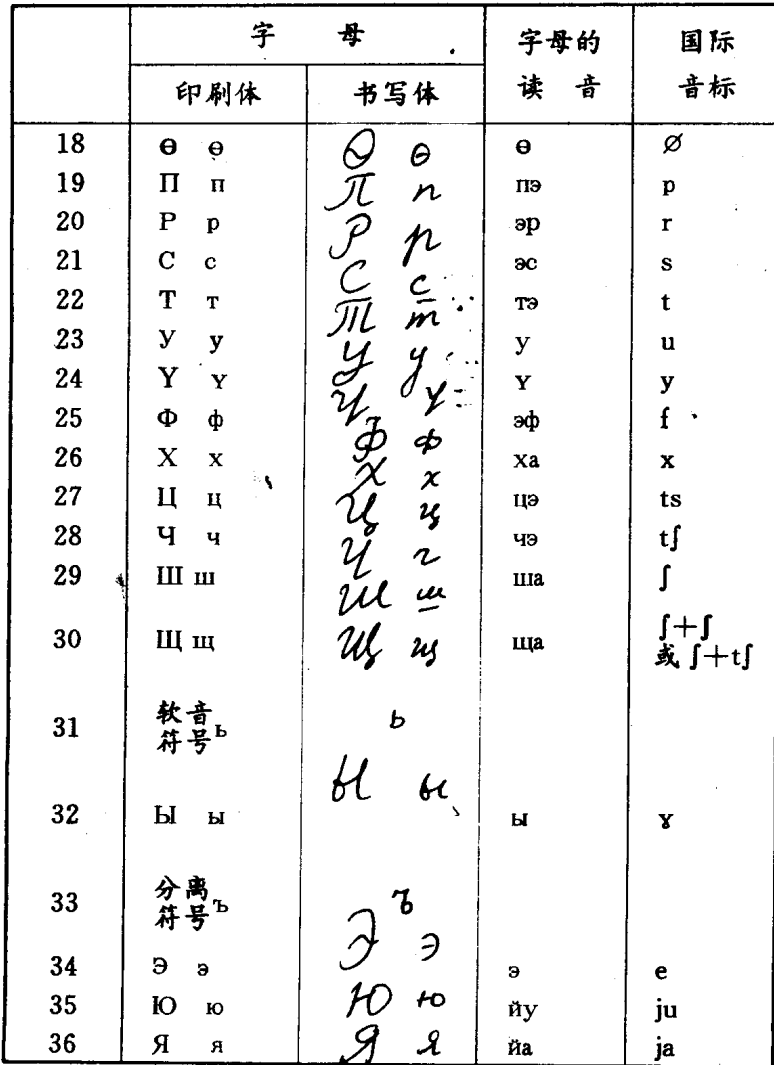 字 母 字母的 国际
印刷体 书写体 读 音 音标
18 Ө ө Ө ө ө ∅
19 П п П п пэ p
20 Р р Р р эр r
21 С с С с эс s
22 Т т Т т тэ t
23 У у У у у u
24 Ү ү Ү ү ү y
25 Ф ф Ф ф эф f
26 Х х Х х ха x
27 Ц ц Ц ц цэ ts
28 Ч ч Ч ч чэ tʃ
29 Ш ш Ш ш ша ʃ
30 Щ щ Щ щ ща ʃ+ʃ
或 ʃ+tʃ
31 软音
符号ь ь
32 Ы ы Ы ы ы ɤ
33 分离
符号ъ ъ
34 Э э Э э э e
35 Ю ю Ю ю йу ju
36 Я я Я я йа ja